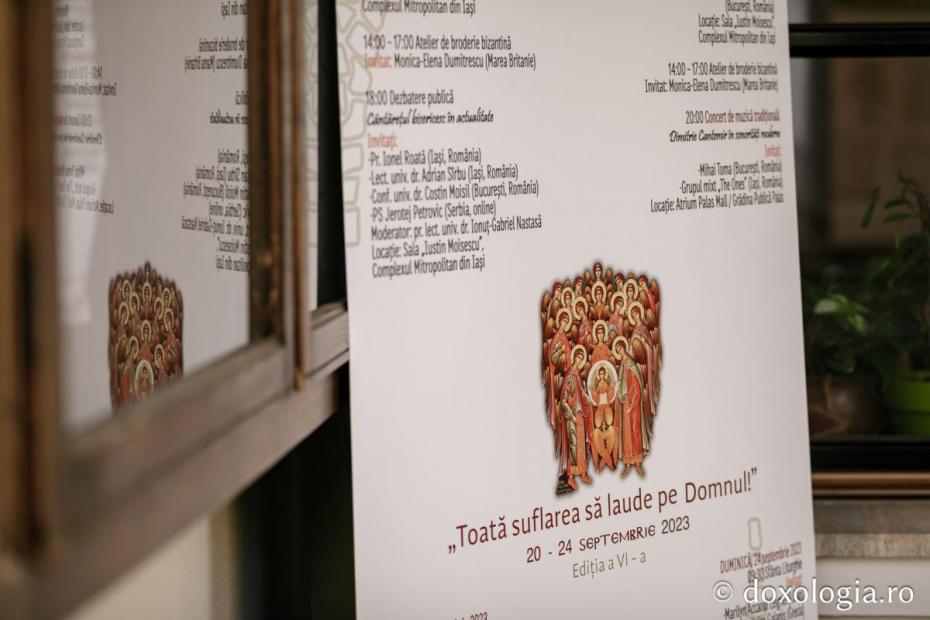 Complexul Mitropolitan din Iași
14:00 - 17:00 Atelier de broderie bizantină
Invitat: Monica-Elena Dumitrescu (Marea Britanie)
18:00 Dezbatere publică
Cântărețul bisericesc în actualitate
Invitați:
-Pr. Ionel Roată (Iași, România)
-Lect. univ. dr. Adrian Sîrbu (Iași, România)
-Conf. univ. dr. Costin Moisil (București, România)
-PS Jerotej Petrovic (Serbia, online)
Moderator: pr. lect. univ. dr. Ionuț-Gabriel Nastasă
Locație: Sala „Iustin Moisescu”,
Complexul Mitropolitan din Iași
(București, România)
Locație: Sala „Iustin Moisescu”,
Complexul Mitropolitan din Iași
14:00 - 17:00 Atelier de broderie bizantină
Invitat: Monica-Elena Dumitrescu (Marea Britanie)
20:00 Concert de muzică tradițională
Dimitrie Cantemir în sonorități moderne
Invitați:
-Mihai Toma (București, România)
-Grupul mixt „The Ones” (Iași, România)
Locație: Atrium Palas Mall / Grădina Publică Palas
„Toată suflarea să laude pe Domnul!”
20 - 24 SEPTEMBRIE 2023
Ediția a VI - a
DUMINICĂ, 24 septembrie 2023
09:30 Sfânta Liturghie
© doxologia.ro